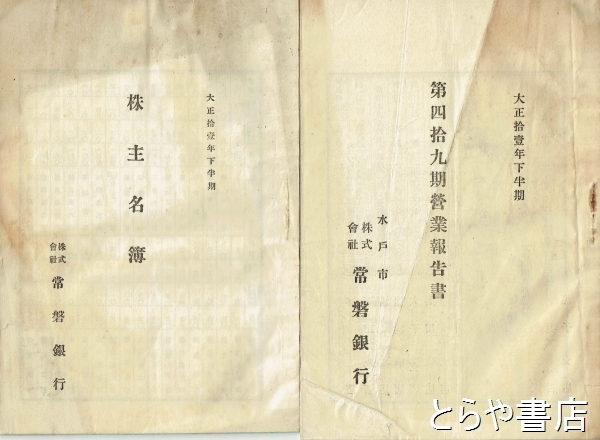 大正拾壹年下半期
株主名簿
株式會社 常磐銀行
大正拾壹年下半期
第四拾九期營業報告書
水戸市
株式會社 常磐銀行
とらや書店